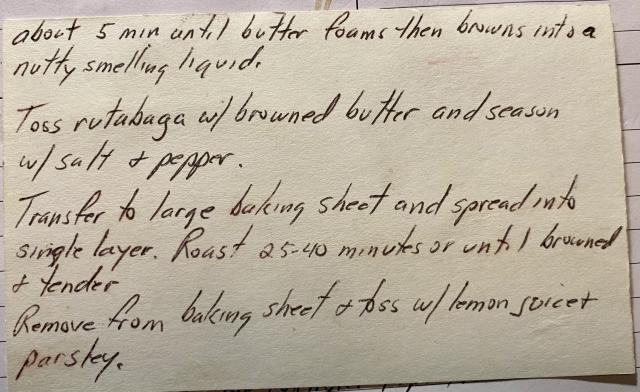 about 5 min until butter foams then browns into a
nutty smelling liquid.
Toss rutabaga w/ browned butter and season
w/ salt + pepper.
Transfer to large baking sheet and spread into
single layer. Roast 25-40 minutes or until browned
+ tender
Remove from baking sheet + toss w/ lemon juice +
parsley.